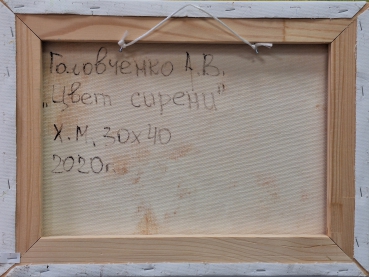 Головчёнко А.В.
"Цвет сирени"
Х.М, 30х40
2020г.